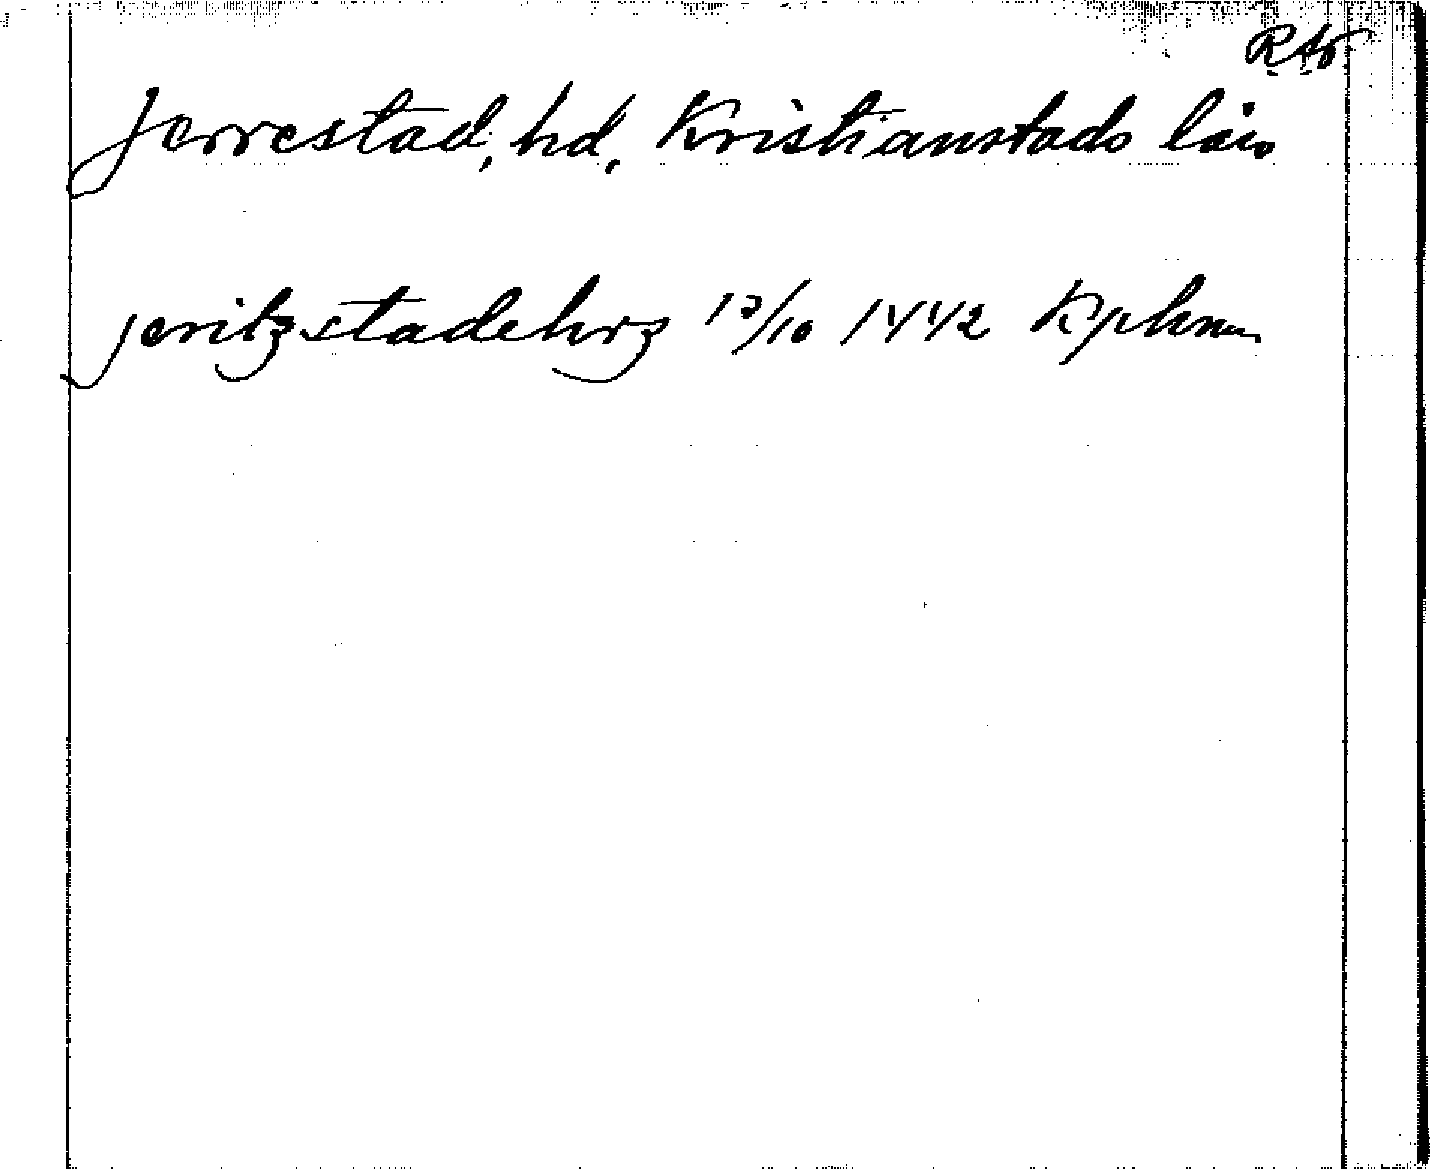 Jerrestad, hd, Kristianstads län
jeritzstadehrz 13/10 1442 Kphmn